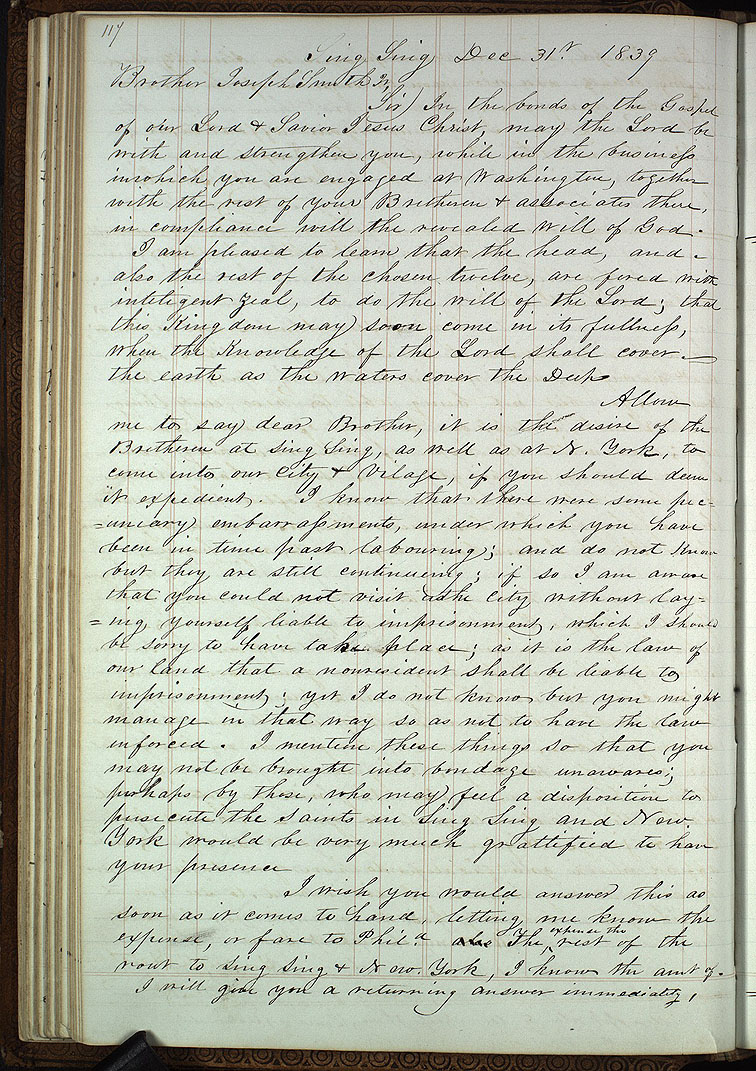 117
Sing Sing Dec 31st 1839
Brother Joseph Smith Jr,
Sir) In the bonds of the Gospel
of our Lord & Savior Jesus Christ, may the Lord be
with and strengthen you, while in the business
in which you are engaged at Washington, together
with the rest of your Bretheren & associates there,
in compliance will the revealed will of God.
I am pleased to learn that the head, and
also the rest of the chosen twelve, are fired with
inteligent zeal, to do the will of the Lord; that
this Kingdom may soon come in its fullness,
when the Knowledge of the Lord shall cover
the earth as the waters cover the Deep
Allow
me to say dear Brother, it is the desire of the
Bretheren at Sing Sing, as well as at N. York, to
come into our City & Vilage, if you should deem
it expedient. I know that there were some pec-
=uniary embarrassments, under which you have
been in time past labouring; and do not know
but they are still continueing; if so I am aware
that you could not visit the City without lay-
=ing yourself liable to imprisonment, which I should
be sorry to have take place; as it is the law of
our land that a nonresident shall be liable to
imprisonment; yet I do not know but you might
manage in that way so as not to have the law
inforced. I mention these things so that you
may not be brought into bondage unawares;
perhaps by those, who may feel a disposition to
persecute the Saints in Sing Sing and New
York would be very much grattified to have
your presence
I wish you would answer this as
soon as it comes to hand, letting me know the
expense, or fare to Phil.d The expense the rest of the
rout to Sing Sing & New York, I know the amt of.
I will give you a returning answer immediatly,